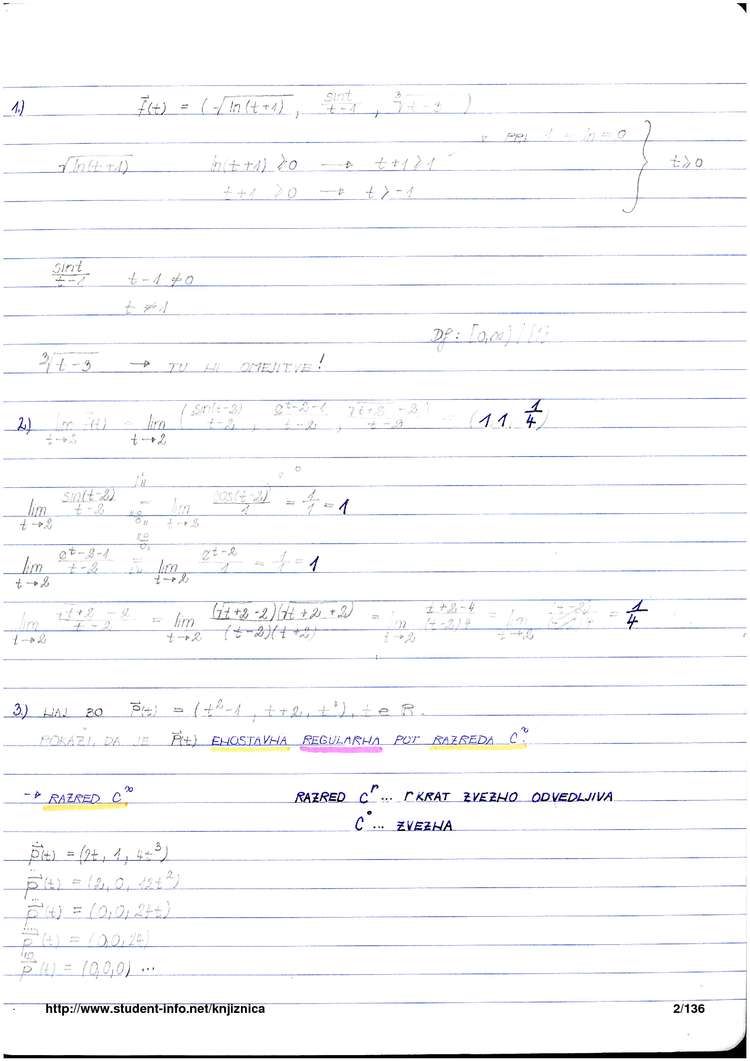 1.) f⃗(t) = (√ln(t+1), sint/t-1, ³√t-3)
PRI 1 → ln = 0
√ln(t+1) ln(t+1) ≥ 0 → t+1 ≥ 1 } t ≥ 0
t+1 ≥ 0 → t > -1
sint/t-1 t-1 ≠ 0
t ≠ 1
Df: [0,∞) / {1}
³√t-3 → TU NI OMEJITVE!
2.) lim t→2 f⃗(t) = lim t→2 (sin(t-2)/t-2, e^t-2-1/t-2, √t+2-2/t-2) = (1,1,1/4)
lim t→2 sin(t-2)/t-2 = lim t→2 cos(t-2)/1 = 1/1 = 1
lim t→2 e^t-2-1/t-2 = lim t→2 e^t-2/1 = 1/1 = 1
lim t→2 √t+2-2/t-2 = lim t→2 (√t+2-2)(√t+2+2)/(t-2)(t+2) = lim t→2 t+2-4/(t-2)4 = lim t→2 = 1/4
3.) NAJ BO p⃗(t) = (t²-1, t+2, t⁴), t∈R.
POKAŽI, DA JE p⃗(t) ENOSTAVNA REGULARNA POT RAZREDA C^∞.
→ RAZRED C^∞ RAZRED C^r... r KRAT ZVEZNO ODVEDLJIVA
C⁰... ZVEZNA
ṗ(t) = (2t, 1, 4t³)
p̈(t) = (2, 0, 12t²)
p⃛(t) = (0,0,24t)
p⃜(t) = (0,0,24)
p(t) = (0,0,0) ...
http://www.student-info.net/knjiznica 2/136